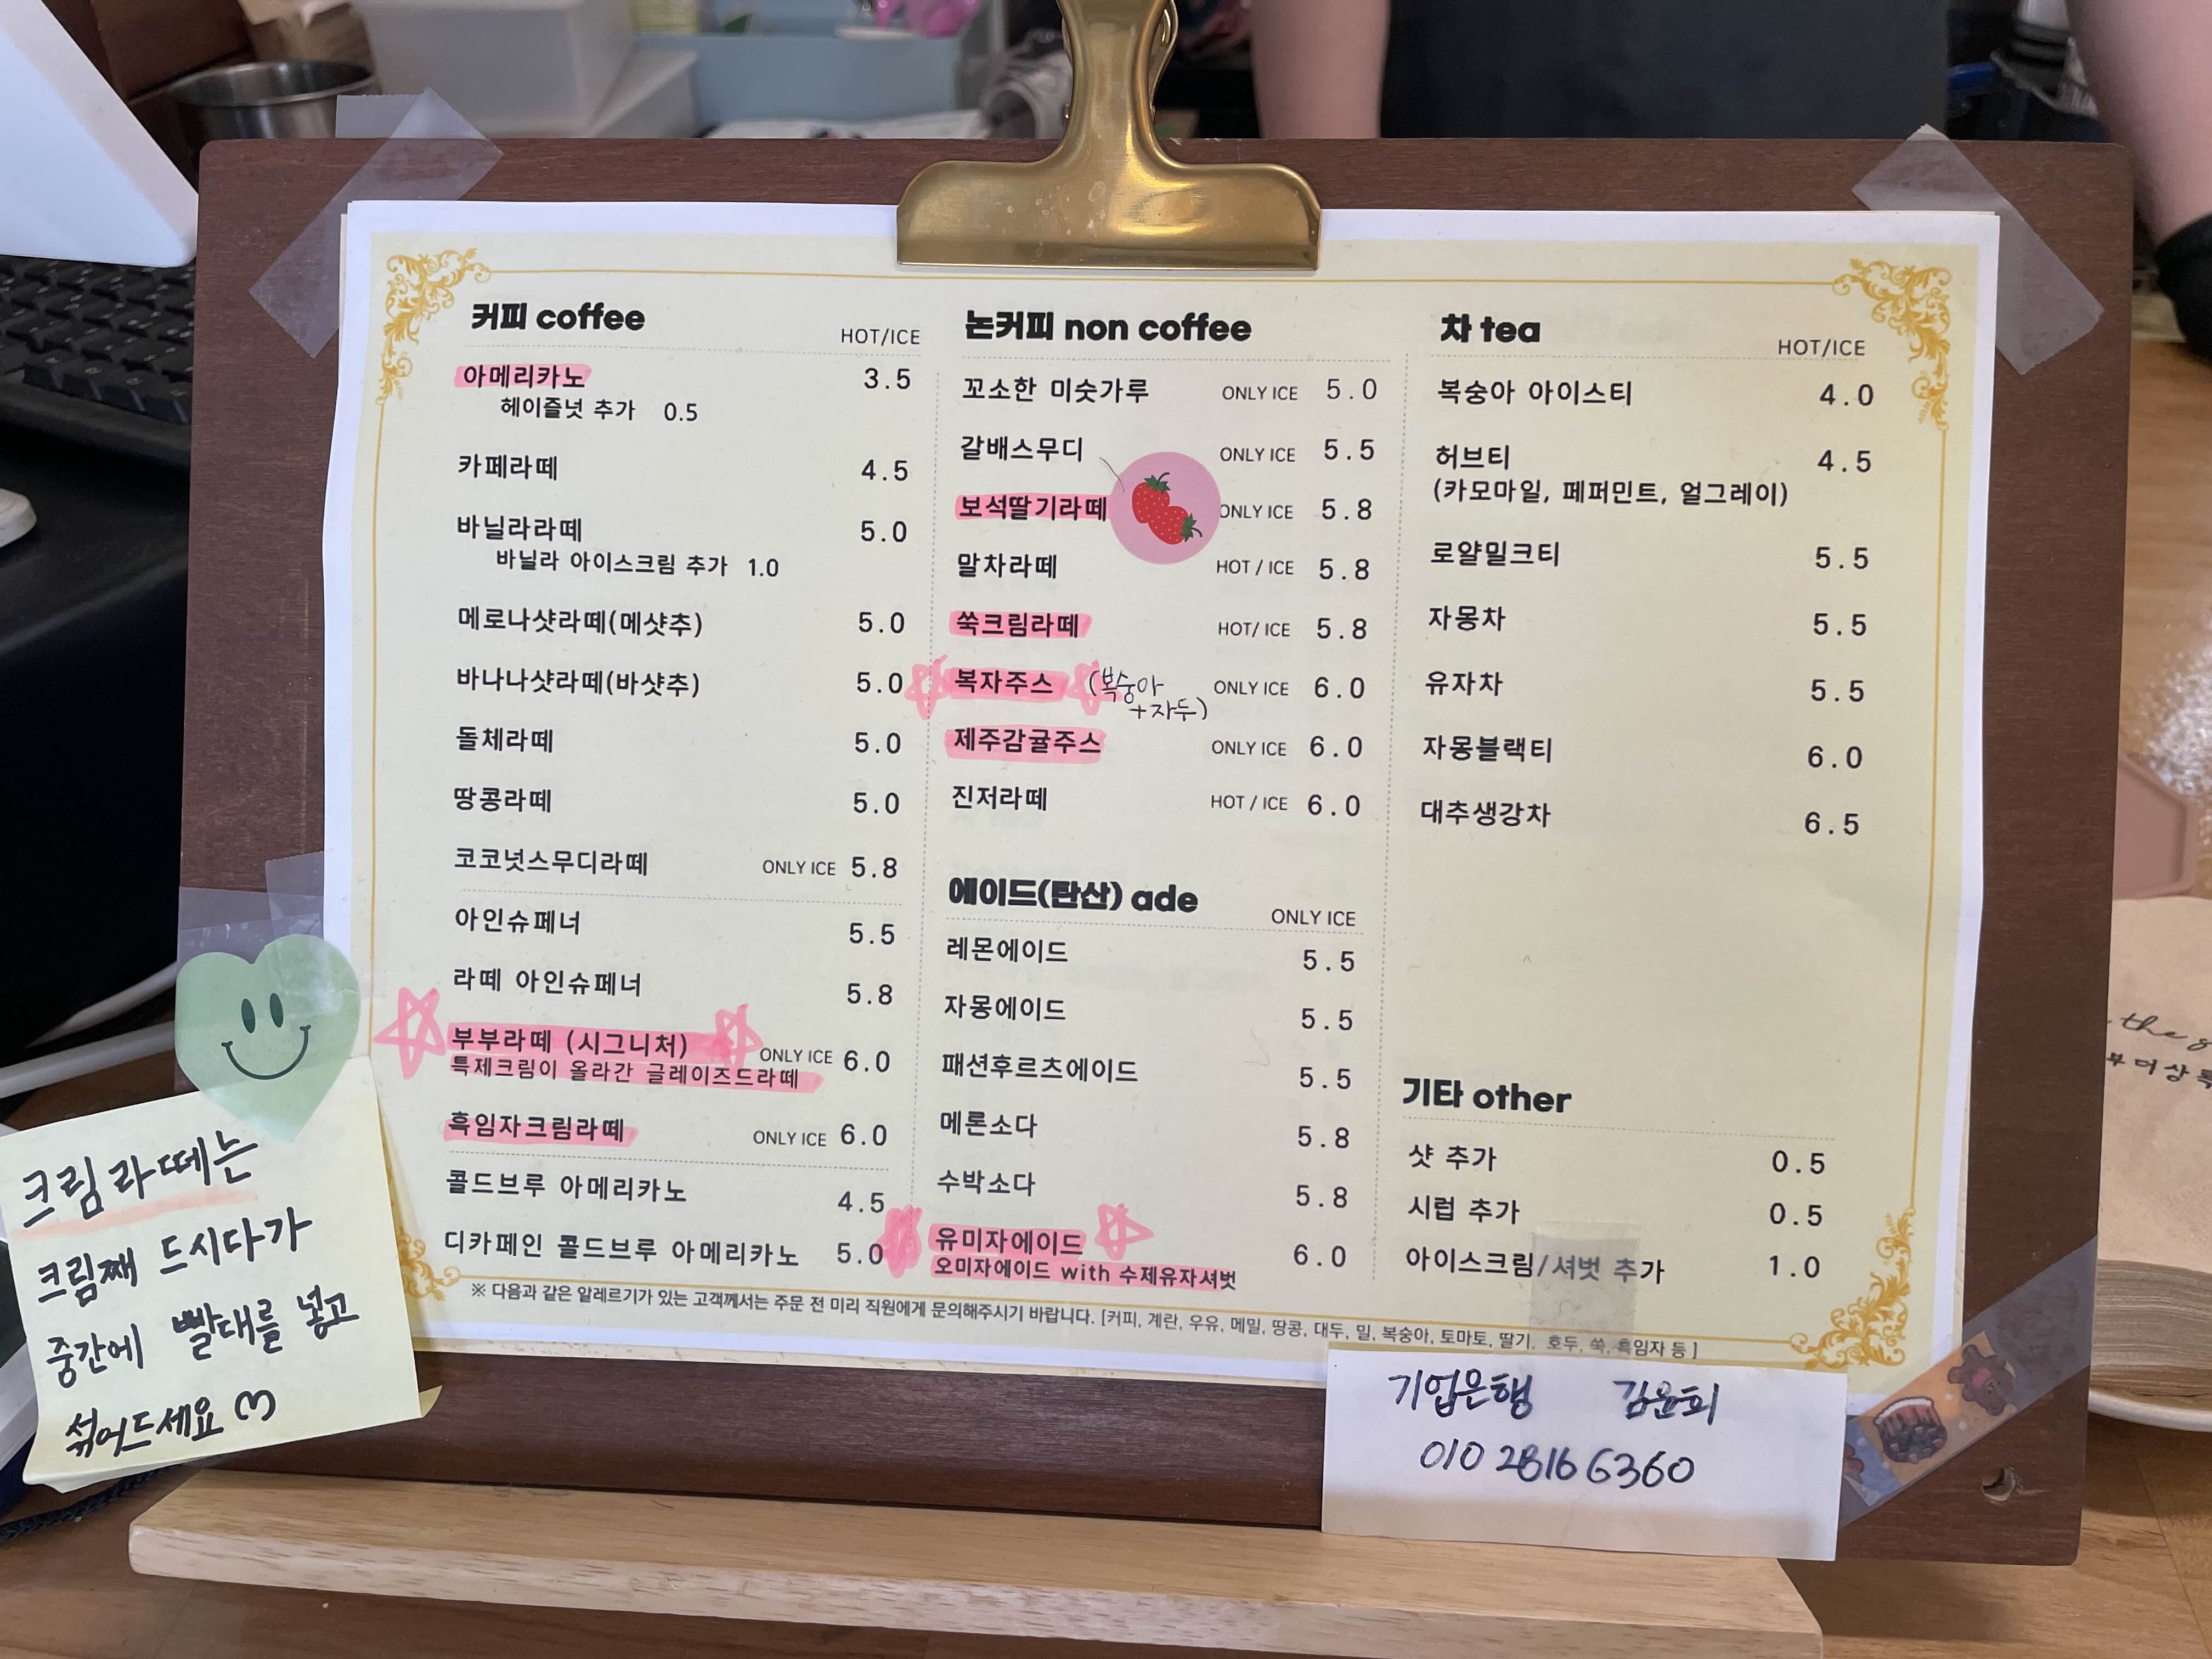 커피 coffee
HOT/ICE
아메리카노 3.5
헤이즐넛 추가 0.5
카페라떼 4.5
바닐라라떼 5.0
바닐라 아이스크림 추가 1.0
메로나샷라떼(메샷추) 5.0
바나나샷라떼(바샷추) 5.0
돌체라떼 5.0
땅콩라떼 5.0
코코넛스무디라떼 ONLY ICE 5.8
아인슈페너 5.5
라떼 아인슈페너 5.8
부부라떼 (시그니처) ONLY ICE 6.0
특제크림이 올라간 글레이즈드라떼
흑임자크림라떼 ONLY ICE 6.0
콜드브루 아메리카노 4.5
디카페인 콜드브루 아메리카노 5.0
논커피 non coffee
꼬소한 미숫가루 ONLY ICE 5.0
갈배스무디 ONLY ICE 5.5
보석딸기라떼 ONLY ICE 5.8
말차라떼 HOT / ICE 5.8
쑥크림라떼 HOT/ ICE 5.8
복자주스 (복숭아 ONLY ICE 6.0
+자두)
제주감귤주스 ONLY ICE 6.0
진저라떼 HOT / ICE 6.0
에이드(탄산) ade
ONLY ICE
레몬에이드 5.5
자몽에이드 5.5
패션후르츠에이드 5.5
메론소다 5.8
수박소다 5.8
유미자에이드 6.0
오미자에이드 with 수제유자셔벗
차 tea
HOT/ICE
복숭아 아이스티 4.0
허브티 4.5
(카모마일, 페퍼민트, 얼그레이)
로얄밀크티 5.5
자몽차 5.5
유자차 5.5
자몽블랙티 6.0
대추생강차 6.5
기타 other
샷 추가 0.5
시럽 추가 0.5
아이스크림/셔벗 추가 1.0
※ 다음과 같은 알레르기가 있는 고객께서는 주문 전 미리 직원에게 문의해주시기 바랍니다. [커피, 계란, 우유, 메밀, 땅콩, 대두, 밀, 복숭아, 토마토, 딸기, 호두, 쑥, 흑임자 등 ]
크림라떼는
크림째 드시다가
중간에 빨대를 넣고
섞어드세요
기업은행 김윤희
010 2816 6360
the
부더상록